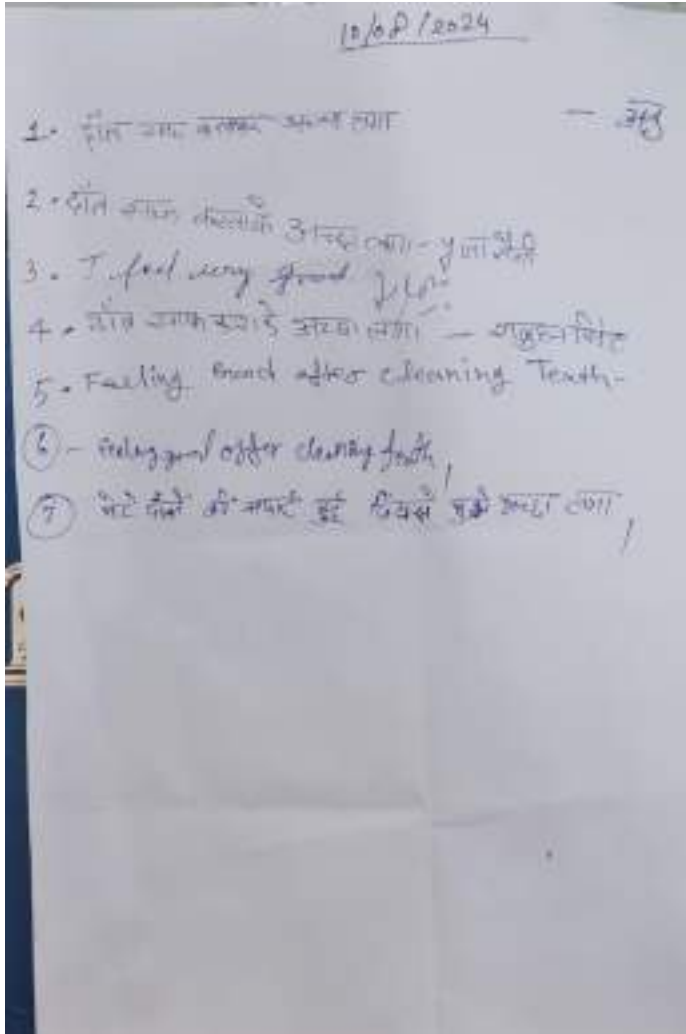 10/08/2024
1. दाँत साफ करवाकर अच्छा लगा - अंजु
2. दाँत साफ करवाके अच्छा लगा - पूजा सैनी
3. I feel very good
4. दाँत साफ कराके अच्छा लगा -
5. Feeling Good after cleaning Teath -
6 - Feeling good after cleaning teeth,
7 मेरे दाँतों की सफाई हुई जिससे मुझे अच्छा लगा,